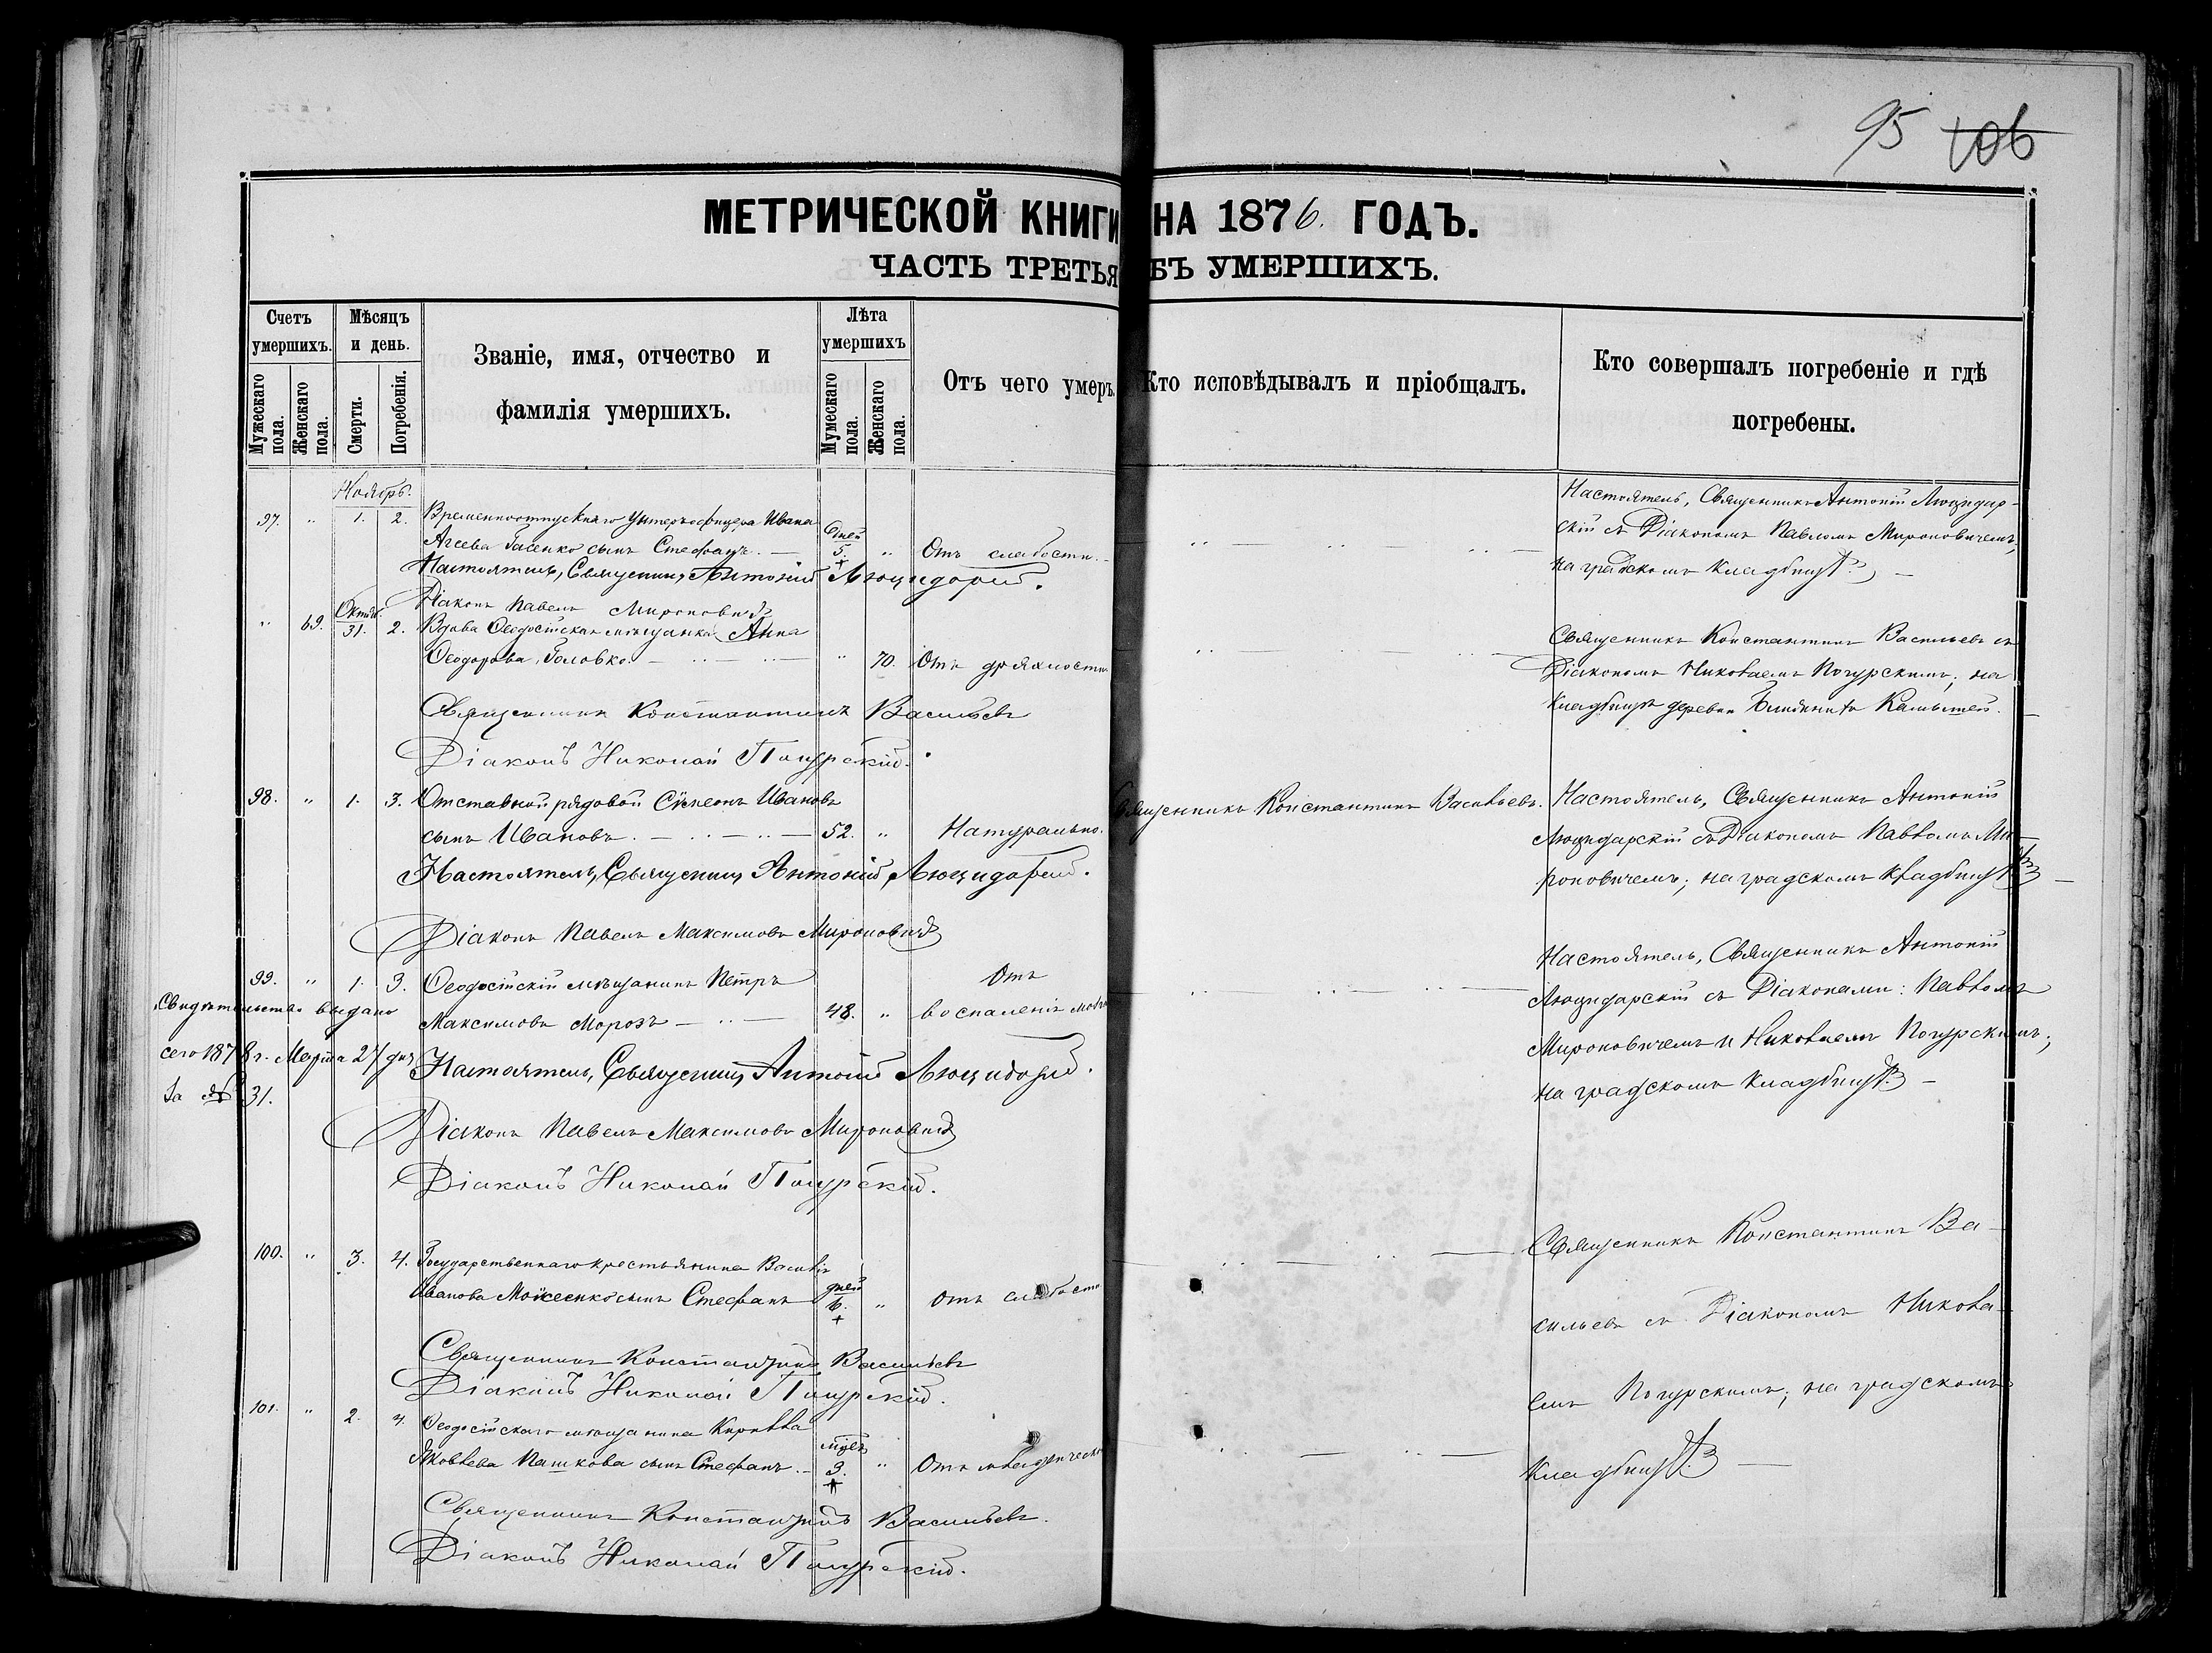 95 106
МЕТРИЧЕСКОЙ КНИГИ НА 1876. ГОДЪ.
ЧАСТЬ ТРЕТЬЯ БЪ УМЕРШИХЪ.
Счетъ умершихъ.
Мужескаго пола.
Женскаго пола.
Мѣсяцъ и день.
Смерти.
Погребенія.
Званіе, имя, отчество и
фамилія умершихъ.
Лѣта умершихъ
Мужескаго пола.
Женскаго пола.
Отъ чего умеръ.
Кто исповѣдывалъ и пріобщалъ.
Кто совершалъ погребеніе и гдѣ
погребены.
Ноябрь.
97. " 1. 2. Временноотпускнаго Унтеръ-офицера Ивана
сынъ Стефанъ. — дней 5. " Отъ слабости.
Настоятель, Священникъ Антоній Люцидарскій.
Діаконъ Павелъ Мироновичъ
Настоятель, Священникъ Антоній Люцидар-
скій съ Діакономъ Павломъ Мироновичемъ,
на градскомъ кладбищѣ. —
" 69. Октяб. 31. 2. Вдова Ѳеодосійская мѣщанка Анна
Ѳеодорова Головко. — " 70. Отъ дряхлости
Священникъ Константинъ Васильевъ
Діаконъ Николай Погурскій.
Священникъ Константинъ Васильевъ съ
Діакономъ Николаемъ Погурскимъ; на
кладбищѣ деревни
98. " 1. 3. Отставной рядовой Сѵмеонъ Ивановъ
сынъ Ивановъ. — 52. " Натурально.
Священникъ Константинъ Васильевъ.
Настоятель, Священникъ Антоній Люцидарскій.
Діаконъ Павелъ Максимовъ Мироновичъ
Настоятель, Священникъ Антоній
Люцидарскій съ Діакономъ Павломъ Ми-
роновичемъ; на градскомъ кладбищѣ —
99. " 1. 3. Ѳеодосійскій мѣщанинъ Петръ
Максимовъ Морозъ — 48. " Отъ
воспаленія
Свидѣтельство выдано
сего 1878 г. Марта 27 дня
за № 31.
Настоятель, Священникъ Антоній Люцидарскій.
Діаконъ Павелъ Максимовъ Мироновичъ
Діаконъ Николай Погурскій.
Настоятель, Священникъ Антоній
Люцидарскій съ Діаконами: Павломъ
Мироновичемъ и Николаемъ Погурскимъ;
на градскомъ кладбищѣ. —
100. " 3. 4. Государственнаго крестьянина Василія
Иванова Моисеенко сынъ Стефанъ дней 6. " Отъ слабости
Священникъ Константинъ Васильевъ
Діаконъ Николай Погурскій.
Священникъ Константинъ Ва-
сильевъ съ Діакономъ Никола-
емъ Погурскимъ; на градскомъ
кладбищѣ. —
101. " 2. 4. Ѳеодосійскаго мѣщанина Кирилла
Яковлева Пашкова сынъ Стефанъ. — 3. " Отъ младенческой
Священникъ Константинъ Васильевъ.
Діаконъ Николай Погурскій.